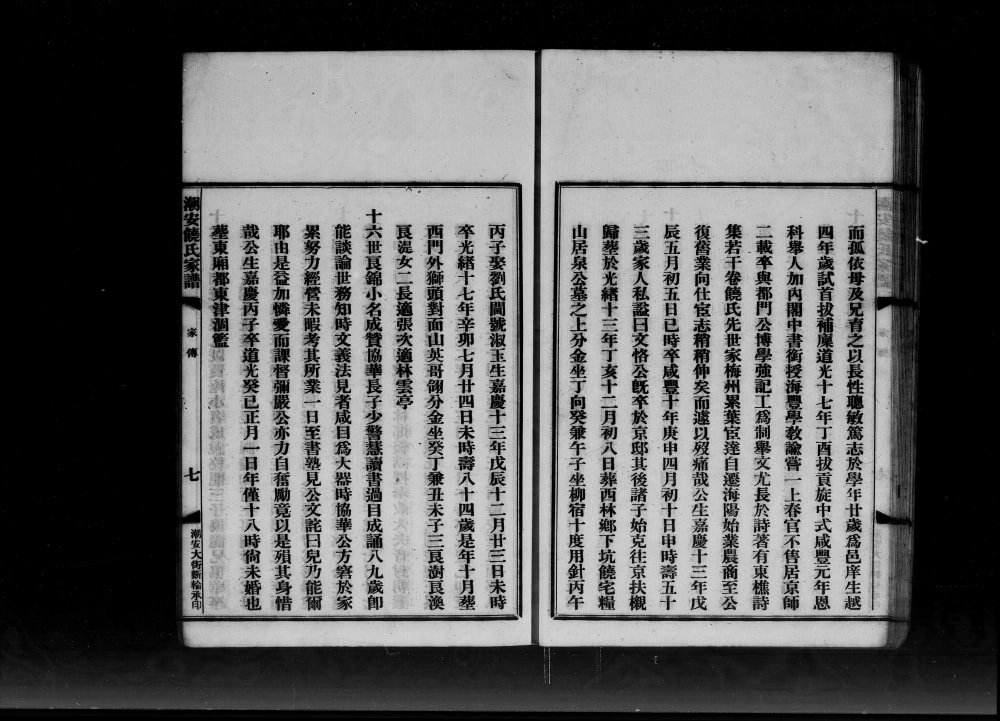 而孤依母及兄育之以長性聰敏篤志於學年廿歲為邑庠生越
四年歲試首拔補廩道光十七年丁酉拔貢旋中式咸豐元年恩
科舉人加內閣中書銜授海豐學教諭嘗一上春官不售居京師
二載卒與都門公博學強記工為制舉文尤長於詩著有東樵詩
集若干卷饒氏先世家梅州累葉宦達自遷海陽始業農商至公
復舊業向仕宦志稍稍伸矣而遽以歿痛哉公生嘉慶十三年戊
辰五月初五日巳時卒咸豐十年庚申四月初十日申時壽五十
三歲家人私諡曰文恪公既卒於京邸其後諸子始克往京扶櫬
歸葬於光緒十三年丁亥十二月初八日葬西林鄉下坑饒宅糧
山居泉公墓之上分金坐丁向癸兼午子坐柳宿十度用針丙午
丙子娶劉氏閫號淑玉生嘉慶十三年戊辰十二月廿三日未時
卒光緒十七年辛卯七月廿四日未時壽八十四歲是年十月葬
西門外獅頭對面山英哥翎分金坐癸丁兼丑未子三良澍良渙
良湜女二長適張次適林雲亭
十六世良錦小名成贊協華長子少警慧讀書過目成誦八九歲卽
能談論世務知時文義法見者咸目為大器時協華公方窘於家
累努力經營未暇考其所業一日至書塾見公文詫曰兒乃能爾
耶由是益加憐愛而課督彌嚴公亦力自奮勵竟以是殞其身惜
哉公生嘉慶丙子卒道光癸巳正月一日年僅十八時尙未婚也
葬東廂都東津涸籃
潮安饒氏家譜
家傳
七
潮安大街斯輪承印